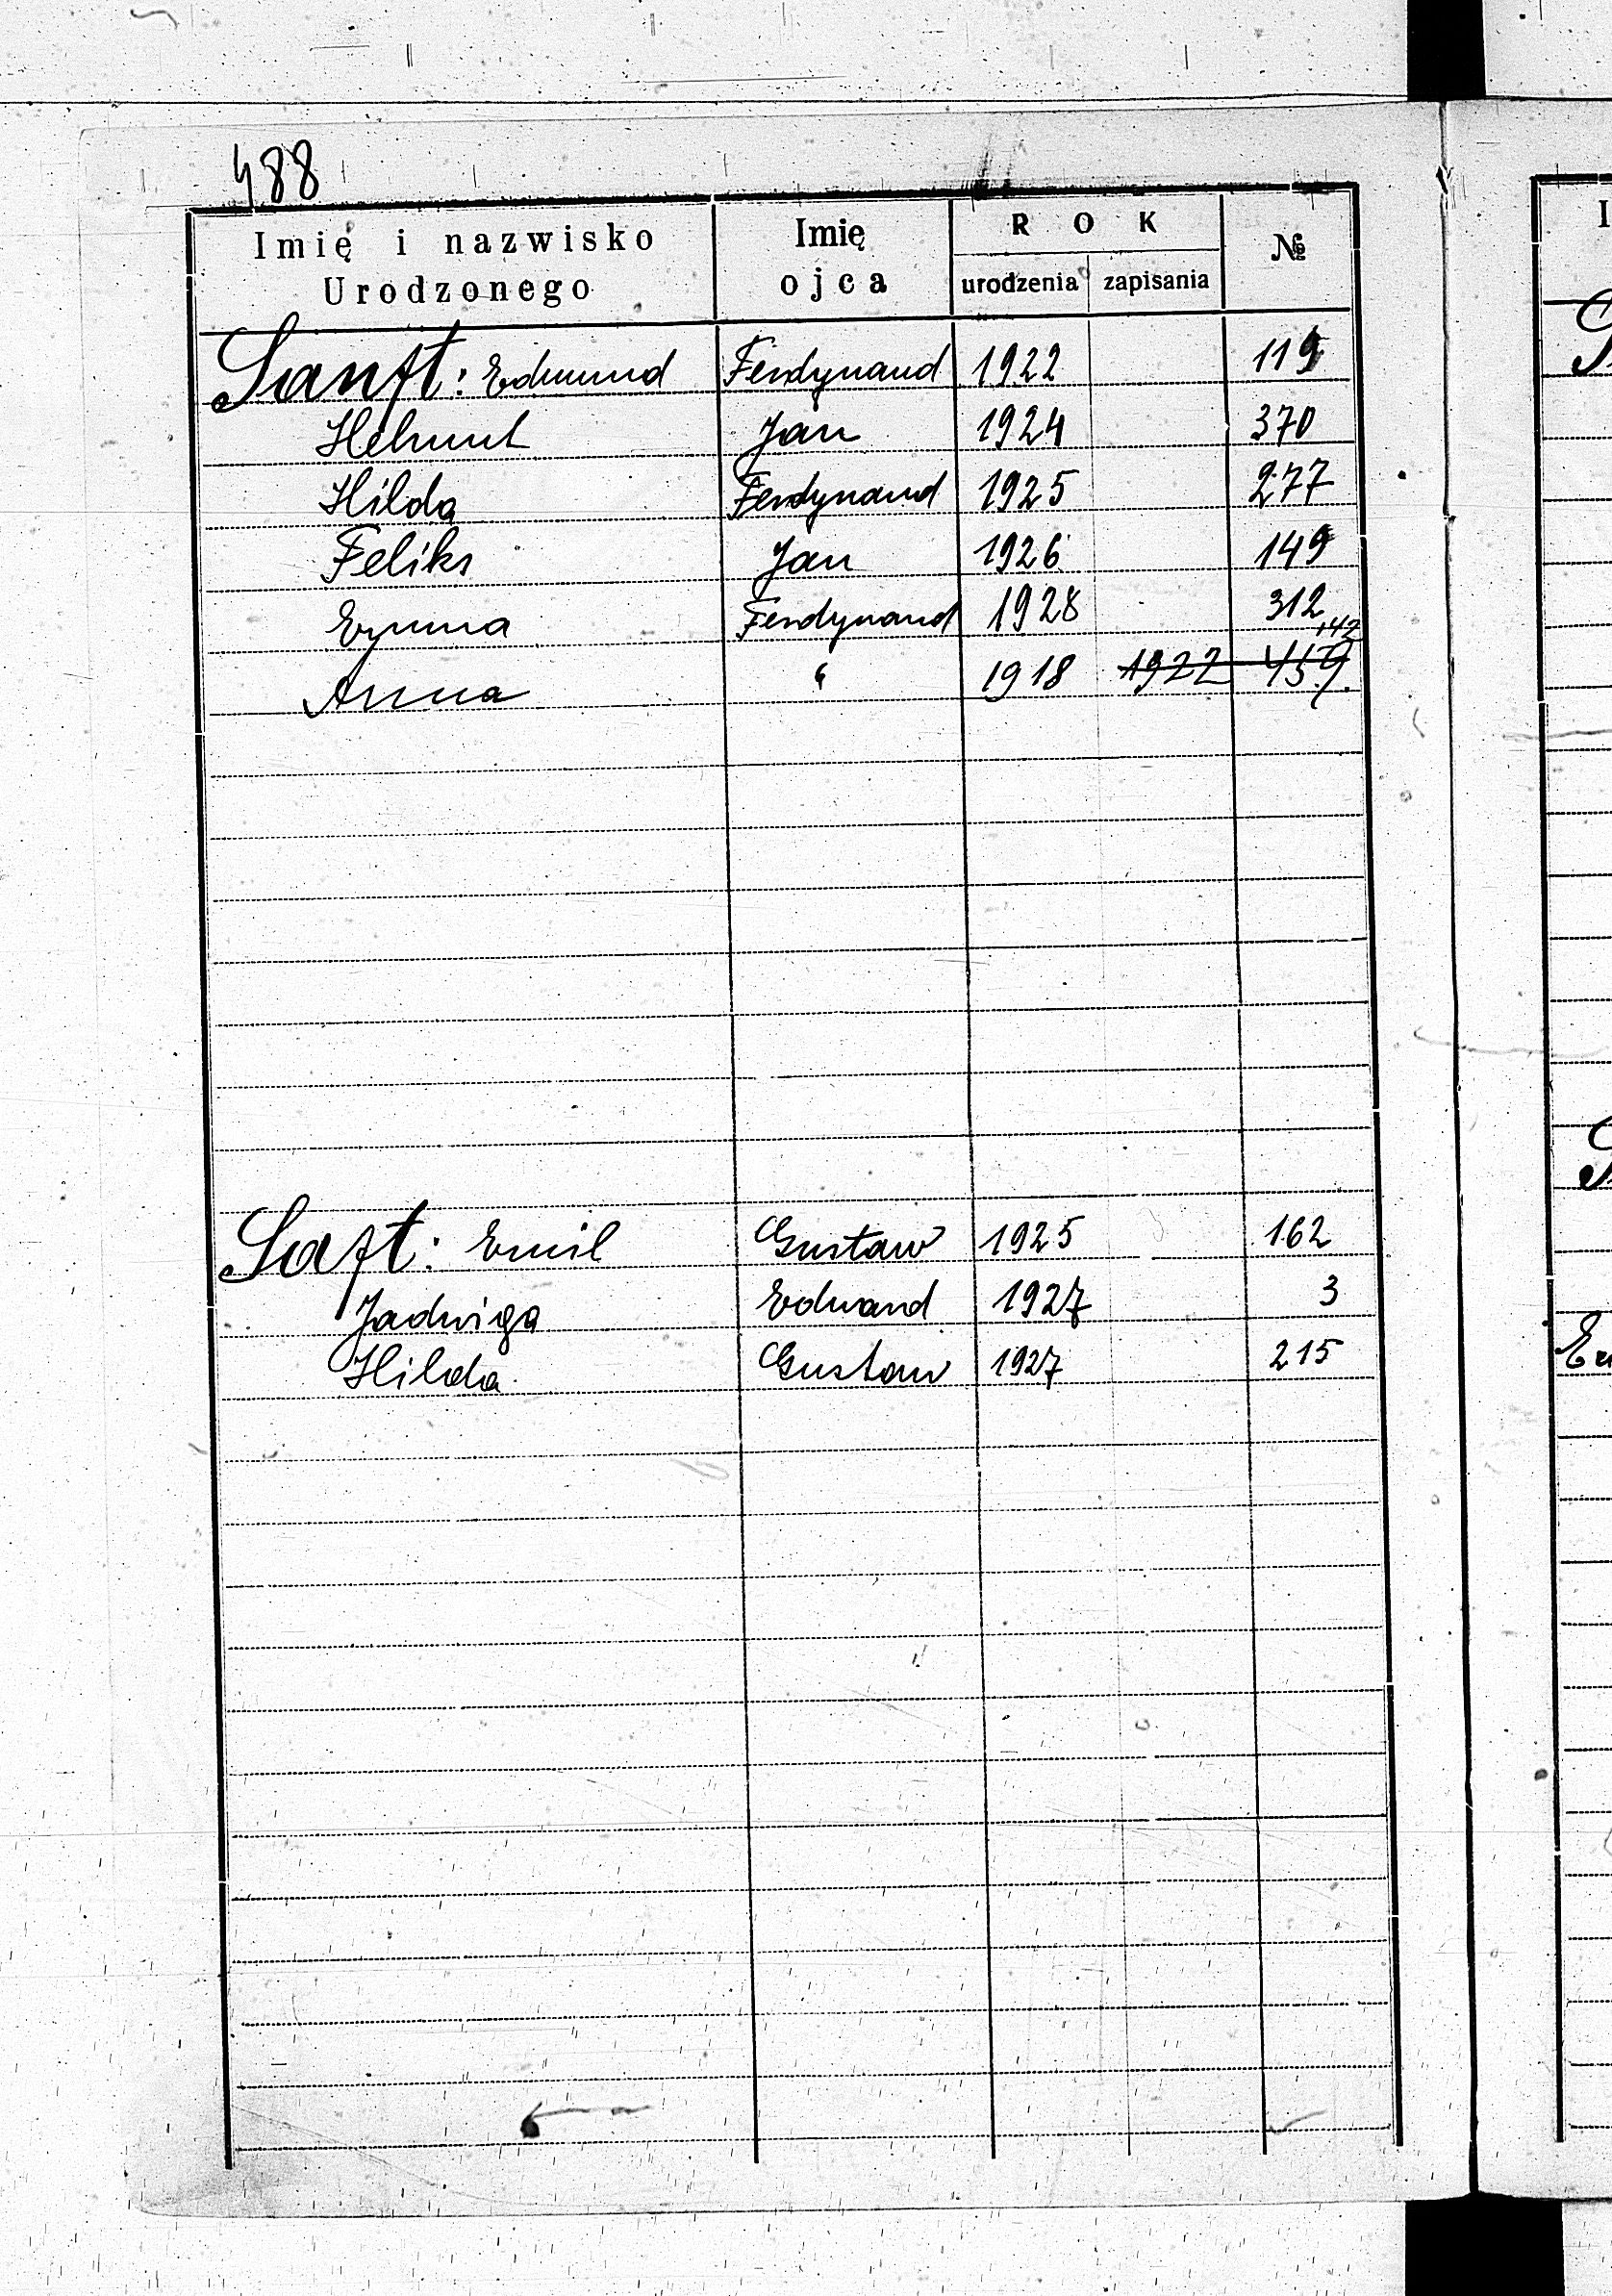 488
Imię i nazwisko Urodzonego Imię ojca ROK urodzenia zapisania №
Sanft: Edmund Ferdynand 1922 119
Helmut Jan 1924 370
Hilda Ferdynand 1925 277
Feliks Jan 1926 149
Erynna Ferdynand 1928 312
142
Anna " 1918 1922 459.
Saft: Emil Gustaw 1925 162
Jadwiga Edward 1927 3
Hilda Gustaw 1927 215